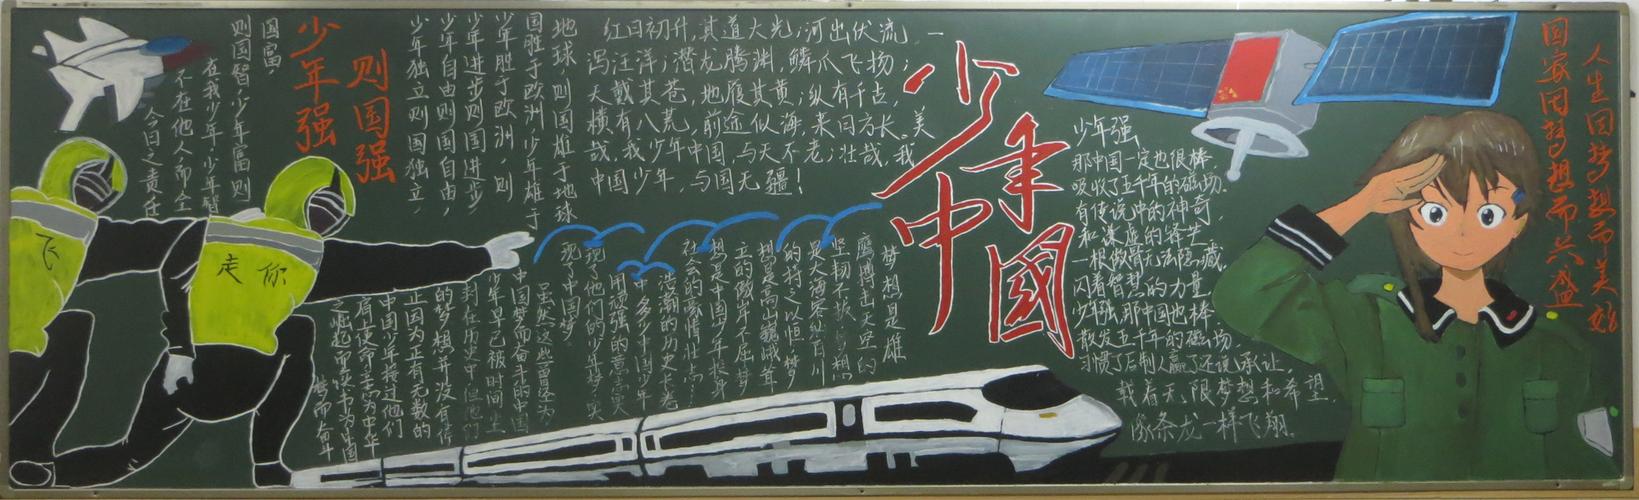 少年强
则国强
国富，
则国智；少年富则
在我少年。少年智
不在他人，而全
今日之责任
地球，则国雄于地球
国胜于欧洲，少年雄于
少年胜于欧洲，则
少年进步则国进步，
少年自由则国自由，
少年独立则国独立，
红日初升，其道大光；河出伏流，一
泻汪洋；潜龙腾渊，鳞爪飞扬；
天戴其苍，地履其黄；纵有千古，
横有八荒，前途似海，来日方长。美
哉，我少年中国，与天不老；壮哉，我
中国少年，与国无疆！
少年中國
少年强
那中国一定也很棒
吸收了五千年的磁场
有传说中的神奇
和谦虚的养生
一根傲骨无法隐藏
闪着智慧的力量
少年强，那中国也棒
散发五千年的磁场
习惯了后制人赢了还说承让
载着无限梦想和希望
像条龙一样飞翔
人生因梦想而美好
国家因梦想而兴盛
梦想是雄
鹰搏击天空的
是大海容纳百川
的持之以恒，梦
想是高山巍峨耸
立的傲岸不屈，梦
想是中国少年投身
社会的豪情壮志。
浩瀚的历史长卷
中，多少中国少年
用顽强的意志实
现了他们的少年梦，实
现了中国梦
虽然这些曾经为
中国梦而奋斗的中国
少年早已被时间
的梦想并没有停
正因为正有无数的
中国少年接过他们
有使命去为中华
之崛起而读书，为中国
梦而奋斗
飞
走你